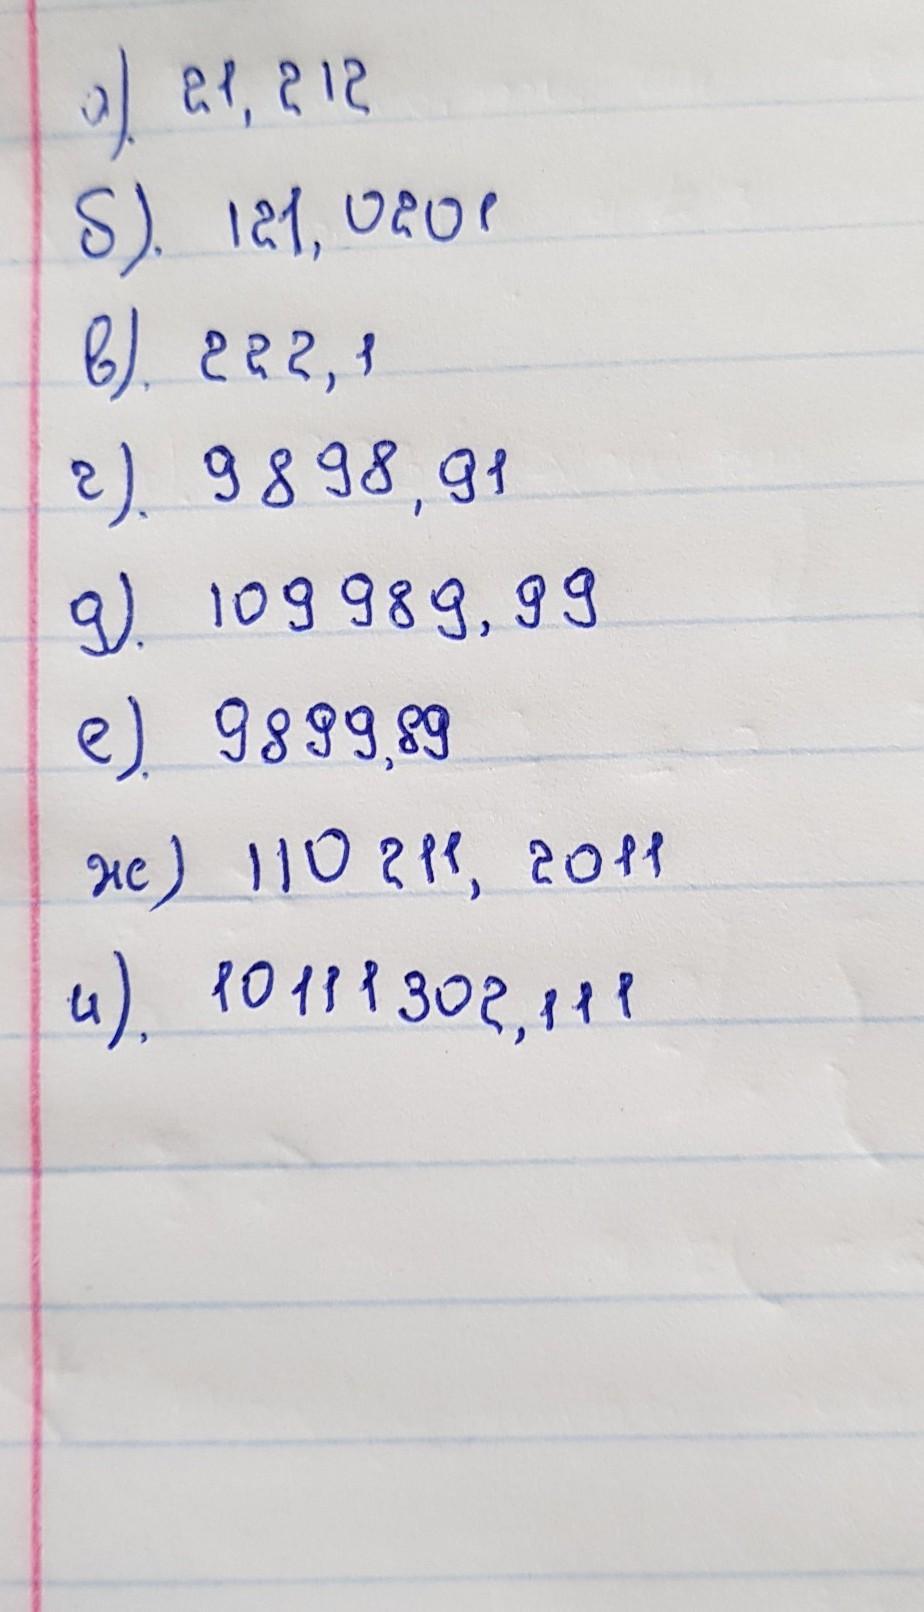 а). 21, 212
б). 121, 0201
в). 222, 1
г). 9898, 91
д). 109 989, 99
е). 9899,89
ж) 110 211, 2011
и). 10111302,111